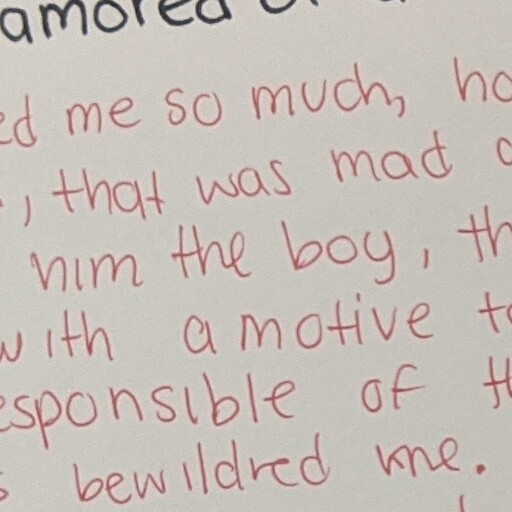 amored
ed me so much, ho
, that was mad
him the boy, th
with a motive to
esponsible of th
s bewildred me.